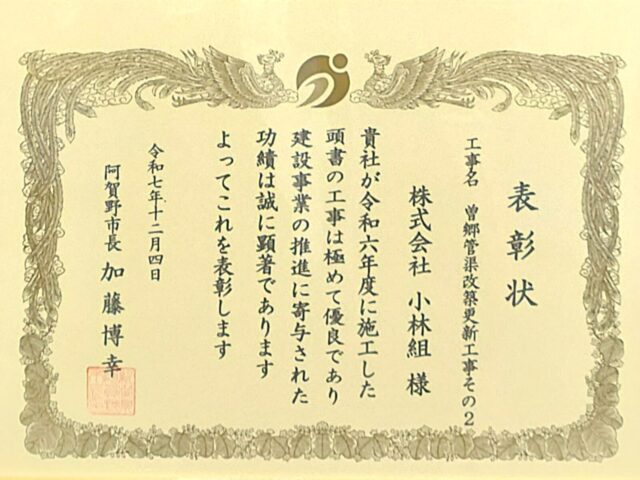 表彰状
工事名 曽郷管渠改築更新工事その2
株式会社 小林組 様
貴社が令和六年度に施工した
頭書の工事は極めて優良であり
建設事業の推進に寄与された
功績は誠に顕著であります
よってこれを表彰します
令和七年十二月四日
阿賀野市長 加藤博幸